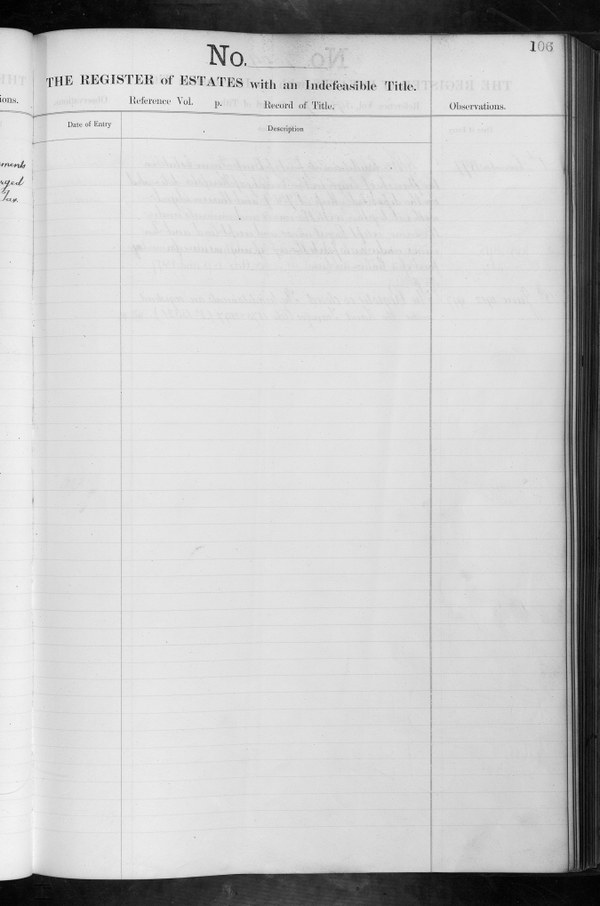 106
No.
THE REGISTER of ESTATES with an Indefeasible Title.
Reference Vol. p. Record of Title.
Observations.
Date of Entry
Description
ions.
ments
Tax